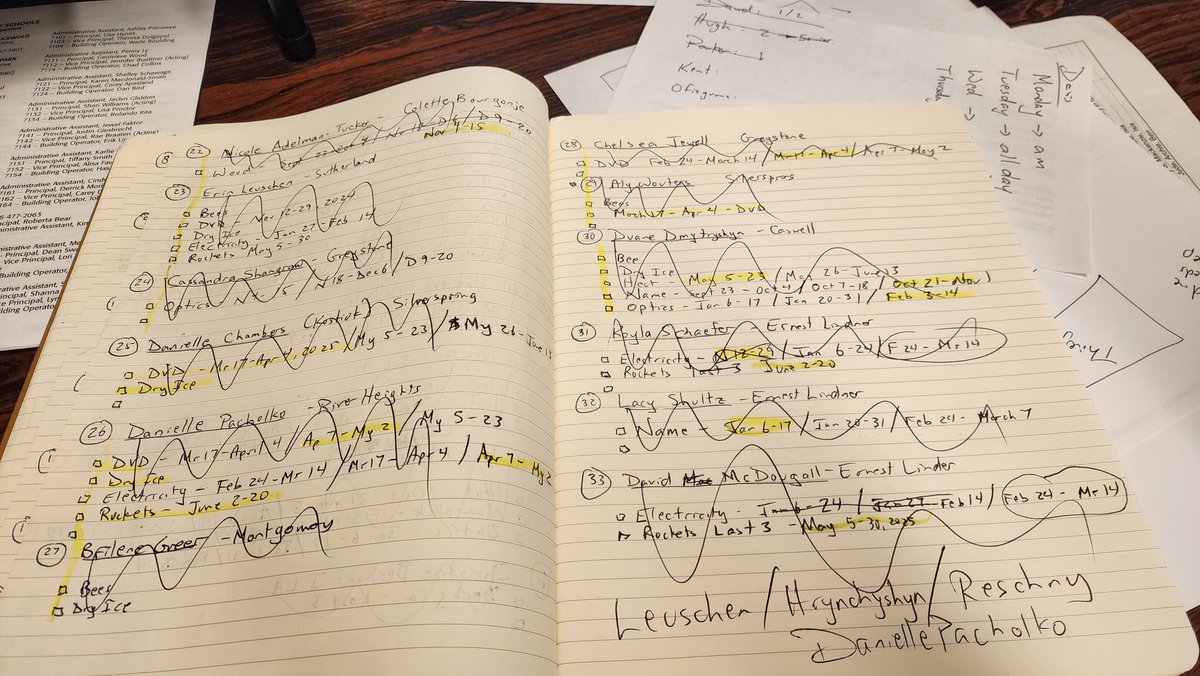 SCHOOLS
Administrative Assistant, Ashley Piecowye
Principal, Lisa Hynes
Vice Principal, Theresa
7104 – Building Operator, Wade Boulding
Administrative Assistant, Penny Ly
7111 – Principal, Genevieve Wood
7112 – Vice Principal, Jennifer Buettner (Acting)
7114 – Building Operator, Chad Collins
Administrative Assistant, Shelley Schewaga
7121 – Principal, Karen Macdonald-Smith
7122 – Vice Principal, Corey Apesland
7124 – Building Operator, Dan Bird
Administrative Assistant, Jaclyn Gliddon
7131 – Principal, Shari Williams (Acting)
7132 – Vice Principal, Lisa Proctor
7134 – Building Operator, Rolando Rita
Administrative Assistant, Jewel Faktor
7141 – Principal, Justin Giesbrecht
7142 – Vice Principal, Rae Braaten (Acting)
7144 – Building Operator, Erik
Administrative Assistant, Karlie
7151 – Principal, Tiffany Smith
7152 – Vice Principal, Alisa
7154 – Building Operator,
Administrative Assistant,
7161 – Principal, Derrick
7162 – Vice Principal, Carey
7164 – Building Operator,
Principal, Roberta Bear
22 Nicole Adelman-Tucker - Colette Bourgonje
Nov 4-15
23 Erin Leuschen - Sutherland
Bees
DVD - Nov 12-29 2024
Dry Ice
Electricity - Jan 27 - Feb 14
Rockets May 5-30
24 Cassandra Shangron - Greystone
Optics N4-15 / N18-Dec6 / D9-20
25 Danielle Chambers (Kostiuk) Silverspring
DVD - Mr17-Apr4, 2025 / My 5-23 / My 26-June 13
Dry Ice
26 Danielle Pacholko - River Heights
DVD - Mr17-April 4 / Ap 7-My 2 / My 5-23
Dry Ice
Electricity - Feb 24-Mr 14 / Mr17-Apr 4 / Apr 7-My 2
Rockets - June 2-20
27 Brilene Greer - Montgomery
Bees
Dry Ice
28 Chelsea Jewell Greystone
DVD Feb 24-March 14 / Mr17-Apr4 / Apr 7-May 2
29 Aly Wouters Silverspring
Bees
March 17 - Apr 4 - DVD
30 Duane Dmytryshyn - Caswell
Bee
Dry Ice
Heat - May 5-23 / May 26-June 13
Name - Sept 23-Oct 4 / Oct 7-18 / Oct 21-Nov 1
Optics - Jan 6-17 / Jan 20-31 / Feb 3-14
31 Kayla Schaefer - Ernest Lindner
Electricity - N12-29 / Jan 6-24 / F24-Mr14
Rockets Last 3 June 2-20
32 Lacy Shultz - Ernest Lindner
Name - Jan 6-17 / Jan 20-31 / Feb 24 - March 7
33 David McDougall - Ernest Linder
Electricity - Jan 6-24 / Jan 27-Feb 14 / Feb 24 - Mr 14
Rockets Last 3 - May 5-30, 2025
Leuschen / Hrynchyshyn / Reschny
Danielle Pacholko
Hugh: 2
Kent:
Monday → am
Tuesday → all day
Wed →